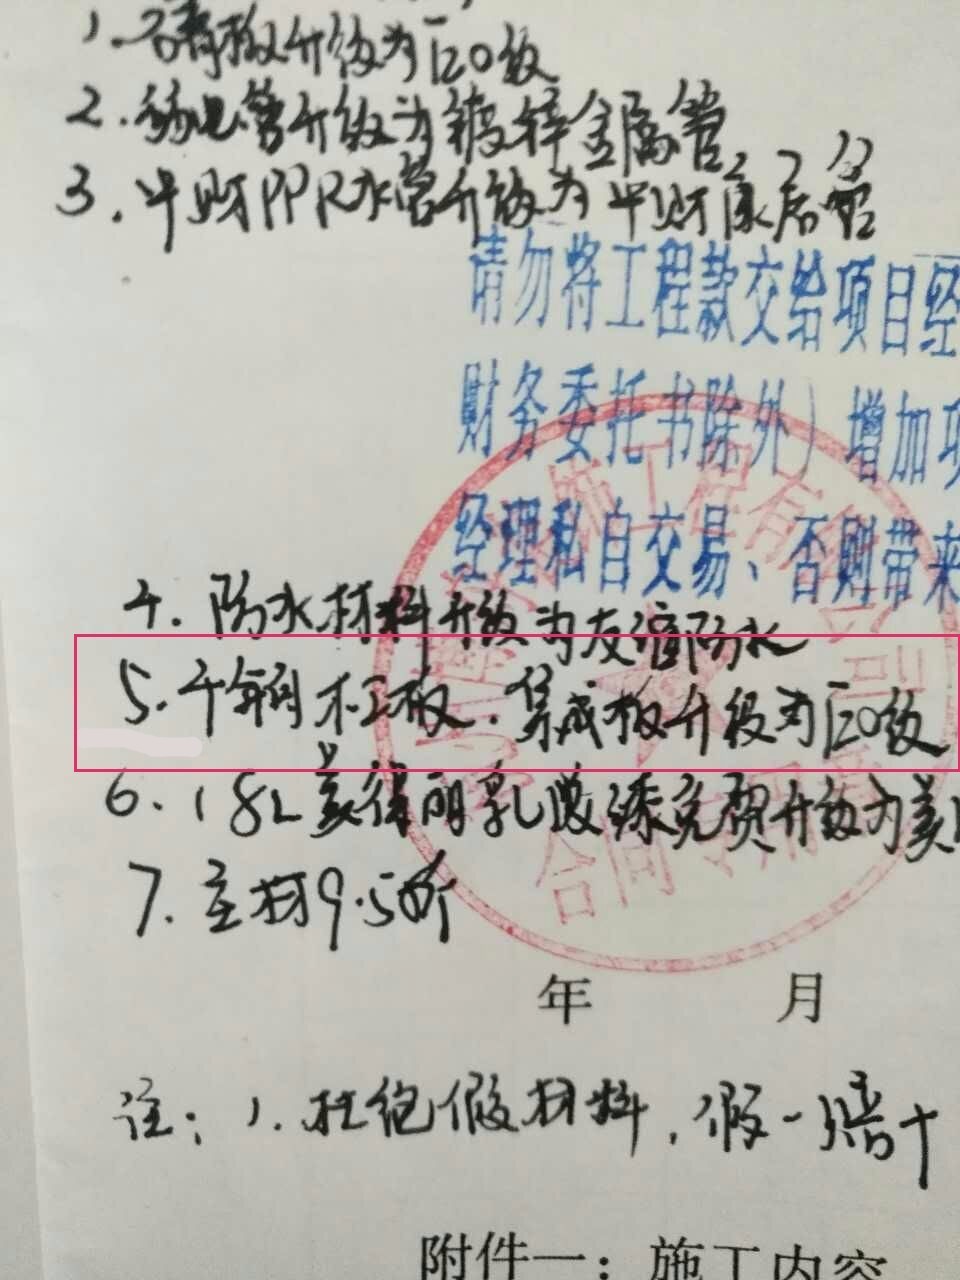 1.石膏板升级为E0级
2.弱电管升级为镀锌金属管
3.中财PPR水管升级为中财康居管
请勿将工程款交给项目经
财务委托书除外）增加项
经理私自交易、否则带来
4.防水材料升级为灰谐防水
5.千年舟木工板.集成板升级为E0级
6.18L美得丽乳胶漆免费升级为美
7.主材9.5折
合同专用
年 月
注：1.杜绝假材料，假一赔十
附件一：施工内容